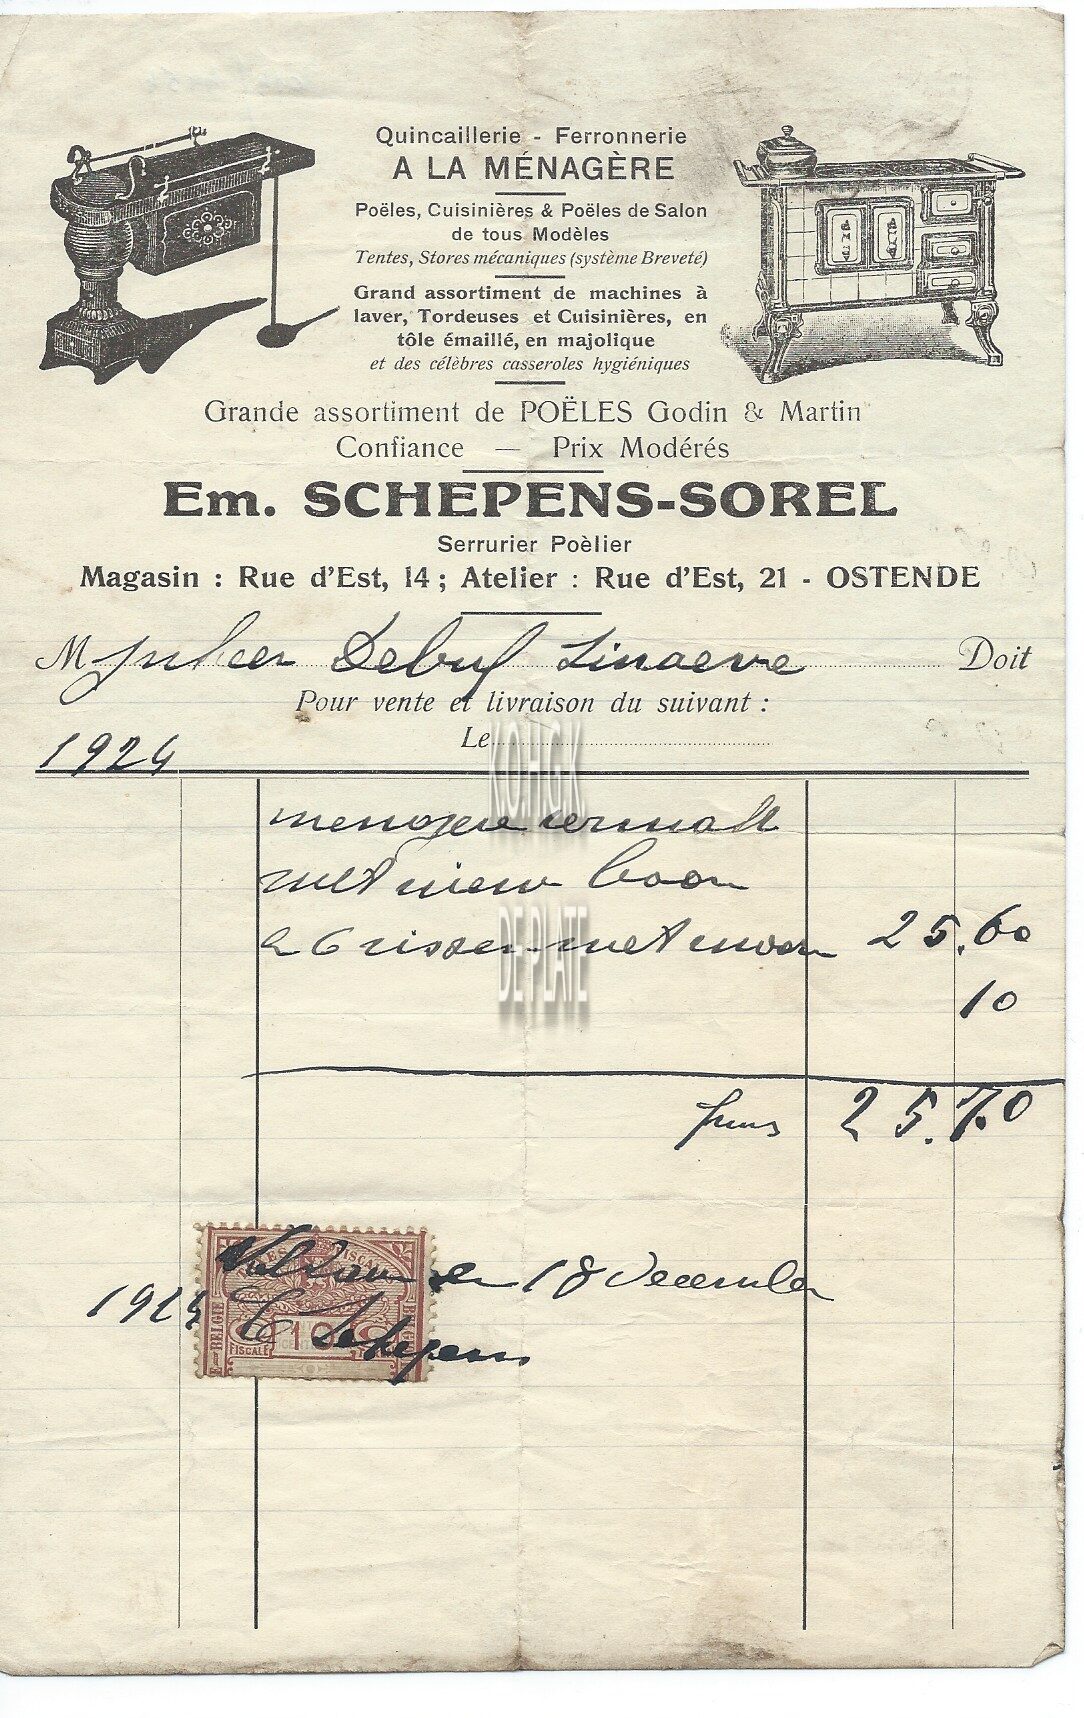 Quincaillerie - Ferronnerie
A LA MÉNAGÈRE
Poëles, Cuisinières & Poëles de Salon
de tous Modèles
Tentes, Stores mécaniques (système Breveté)
Grand assortiment de machines à
laver, Tordeuses et Cuisinières, en
tôle émaillé, en majolique
et des célèbres casseroles hygiéniques
Grande assortiment de POËLES Godin & Martin
Confiance — Prix Modérés
Em. SCHEPENS-SOREL
Serrurier Poèlier
Magasin : Rue d'Est, 14 ; Atelier : Rue d'Est, 21 - OSTENDE
M Debuf Doit
Pour vente et livraison du suivant :
Le
1924
K.O.H.G.K.
met nieuw
DE PLATE
met 25.60
10
25.70
Voldaan en 18 december
1924 E Schepens
BELGIE
FISCALE
10